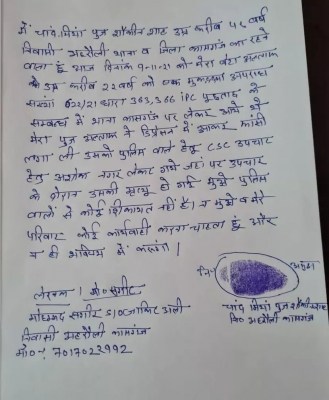 मैं चांद मियां पुत्र शौकीन शाह उम्र करीब 45 वर्ष
निवासी अहरौली थाना व जिला कासगंज का रहने
वाला हूं आज दिनांक 9-11-21 को मेरा बेटा अल्ताफ
को उम्र करीब 22 वर्ष को एक मुकदमा अपराध
संख्या 622/21 धारा 363, 366 IPC पूछताछ के
सम्बन्ध में थाना कासगंज पर लेकर आये थे
मेरा पुत्र अल्ताफ ने डिप्रेसन में आकर फांसी
लगा ली उसको पुलिस वाले हेतु CSC उपचार
हेतु अशोक नगर लेकर गये जहां पर उपचार
के दौरान उसकी मृत्यु हो गई मुझे पुलिस
वालों से कोई शिकायत नहीं है। न मुझे व मेरे
परिवार कोई कार्यवाही करना चाहता हूं और
न ही भविष्य में करूंगा।
लेखक। मो० सगीर
मोहम्मद सगीर S/O जाकिर अली
निवासी अहरौली कासगंज
मो०न० 7017022992
नि० अंगूठा
चांद मियां पुत्र
नि० अहरौली कासगंज